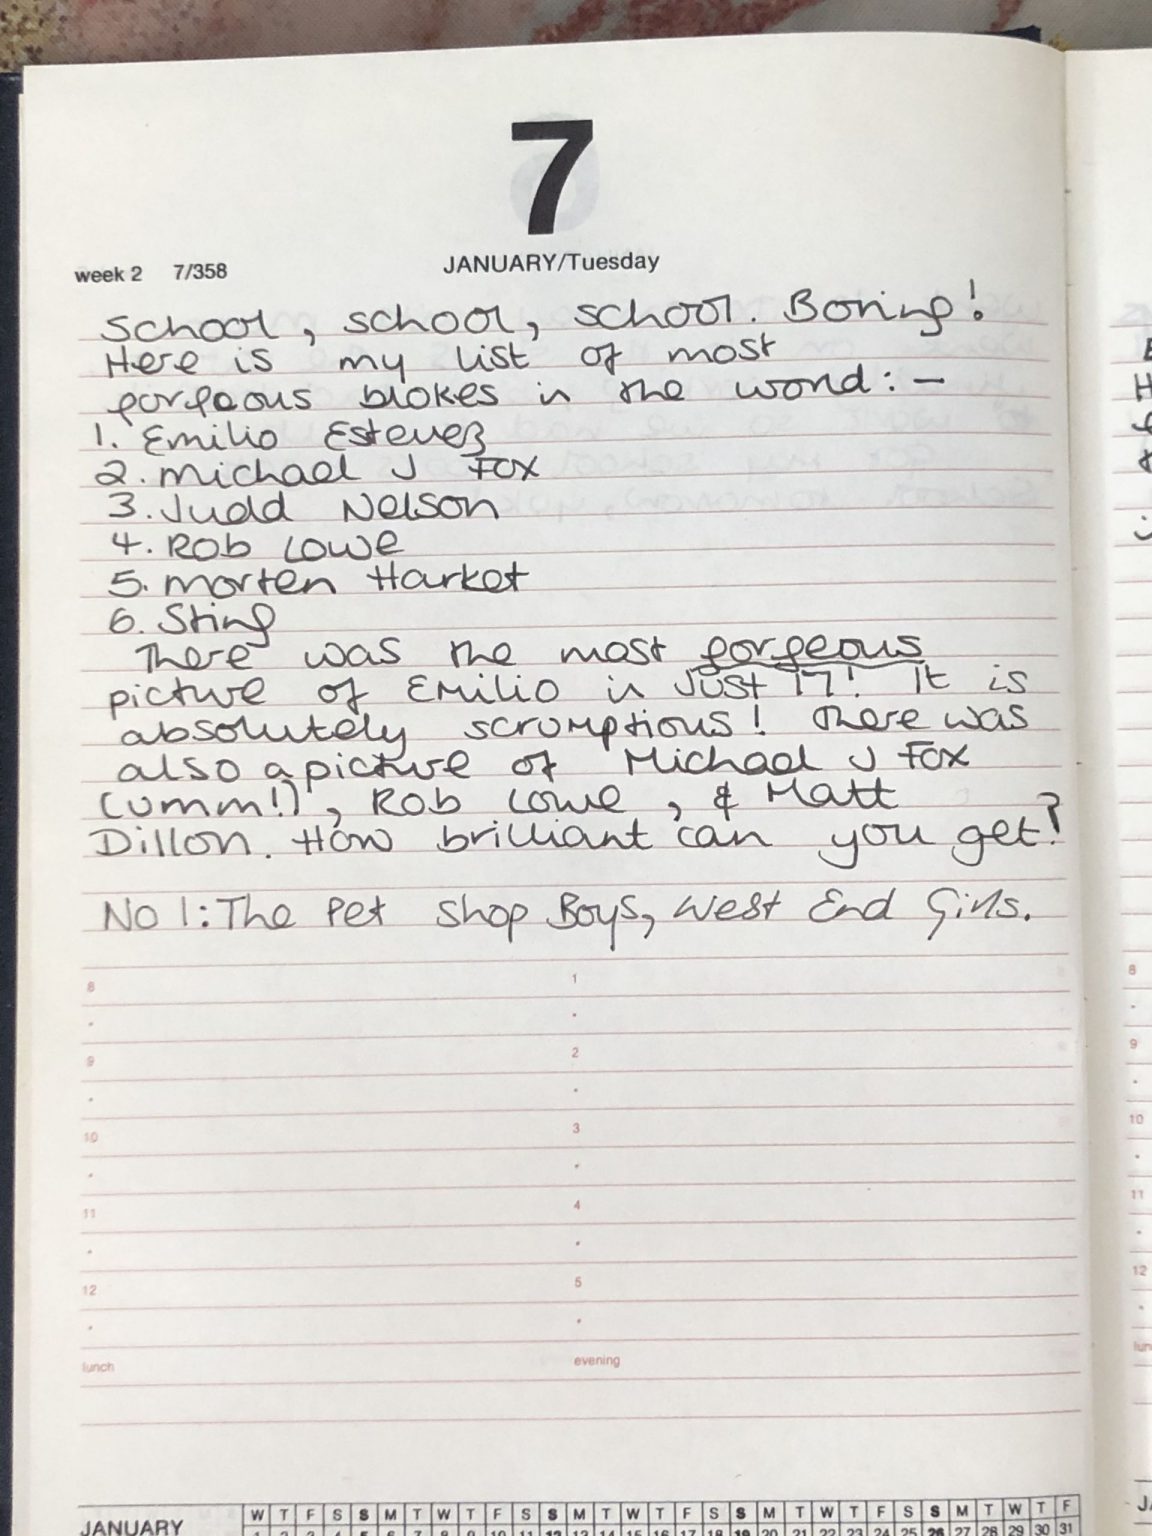 7
JANUARY/Tuesday
week 2 7/358
School, school, school. Boring!
Here is my list of most
gorgeous blokes in the world:-
1. Emilio Estevez
2. Michael J Fox
3. Judd Nelson
4. Rob Lowe
5. Morten Harket
6. Sting
There was the most gorgeous
picture of Emilio in Just 17! It is
absolutely scrumptious! There was
also a picture of Michael J Fox
(umm!), Rob Lowe, & Matt
Dillon. How brilliant can you get?
No 1: The Pet Shop Boys, West End Girls.
8 1
9 2
10 3
11 4
12 5
lunch evening
JANUARY W T F S S M T W T F S S M T W T F S S M T W T F S S M T W T F
1 2 3 4 5 6 7 8 9 10 11 12 13 14 15 16 17 18 19 20 21 22 23 24 25 26 27 28 29 30 31
8
9
10
11
12